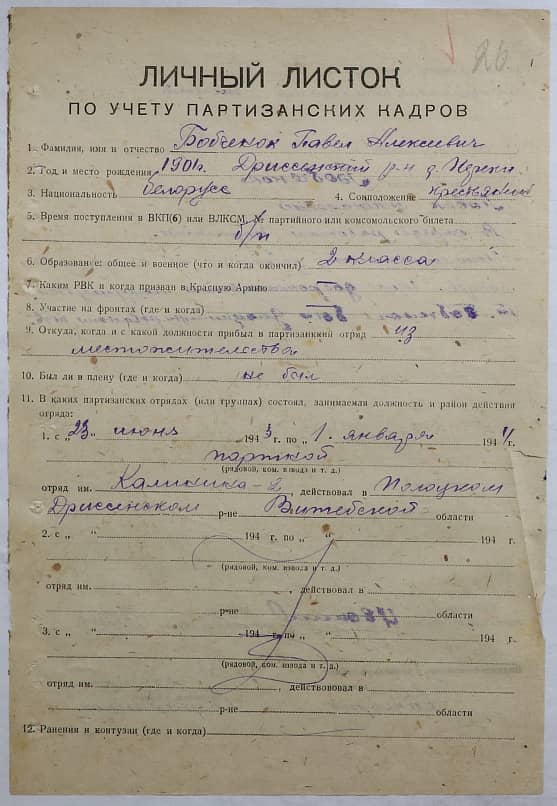 26
ЛИЧНЫЙ ЛИСТОК
ПО УЧЕТУ ПАРТИЗАНСКИХ КАДРОВ
1. Фамилия, имя и отчество Бобченок Павел Алексеевич
2. Год и место рождения 1901г. Дриссенский р-н д.
3. Национальность белорусс 4. Соцположение крестьянин
5. Время поступления в ВКП(б) или ВЛКСМ, № партийного или комсомольского билета
б/п
6. Образование: общее и военное (что и когда окончил) 2 класса
7. Каким РВК и когда призван в Красную Армию
8. Участие на фронтах (где и когда)
9. Откуда, когда и с какой должности прибыл в партизанский отряд из
местожительства
10. Был ли в плену (где и когда) не был
11. В каких партизанских отрядах (или группах) состоял, занимаемая должность и район действия
отряда:
1. с „23" июня 1943 г. по „1. января 1944 г.
(рядовой, ком. взвода и т. д.)
отряд им. Калинина-2 действовал в Полоцком
Дриссенском р-не Витебской области
2. с „ " 194 г. по „ " 194 г.
(рядовой, ком. взвода и т. д.)
отряд им. , действовал в
р-не области
3. с „ " 194 г. по „ " 194 г.
(рядовой, ком. взвода и т. д.)
отряд им. , действововал в
р-не области
12. Ранения и контузии (где и когда)